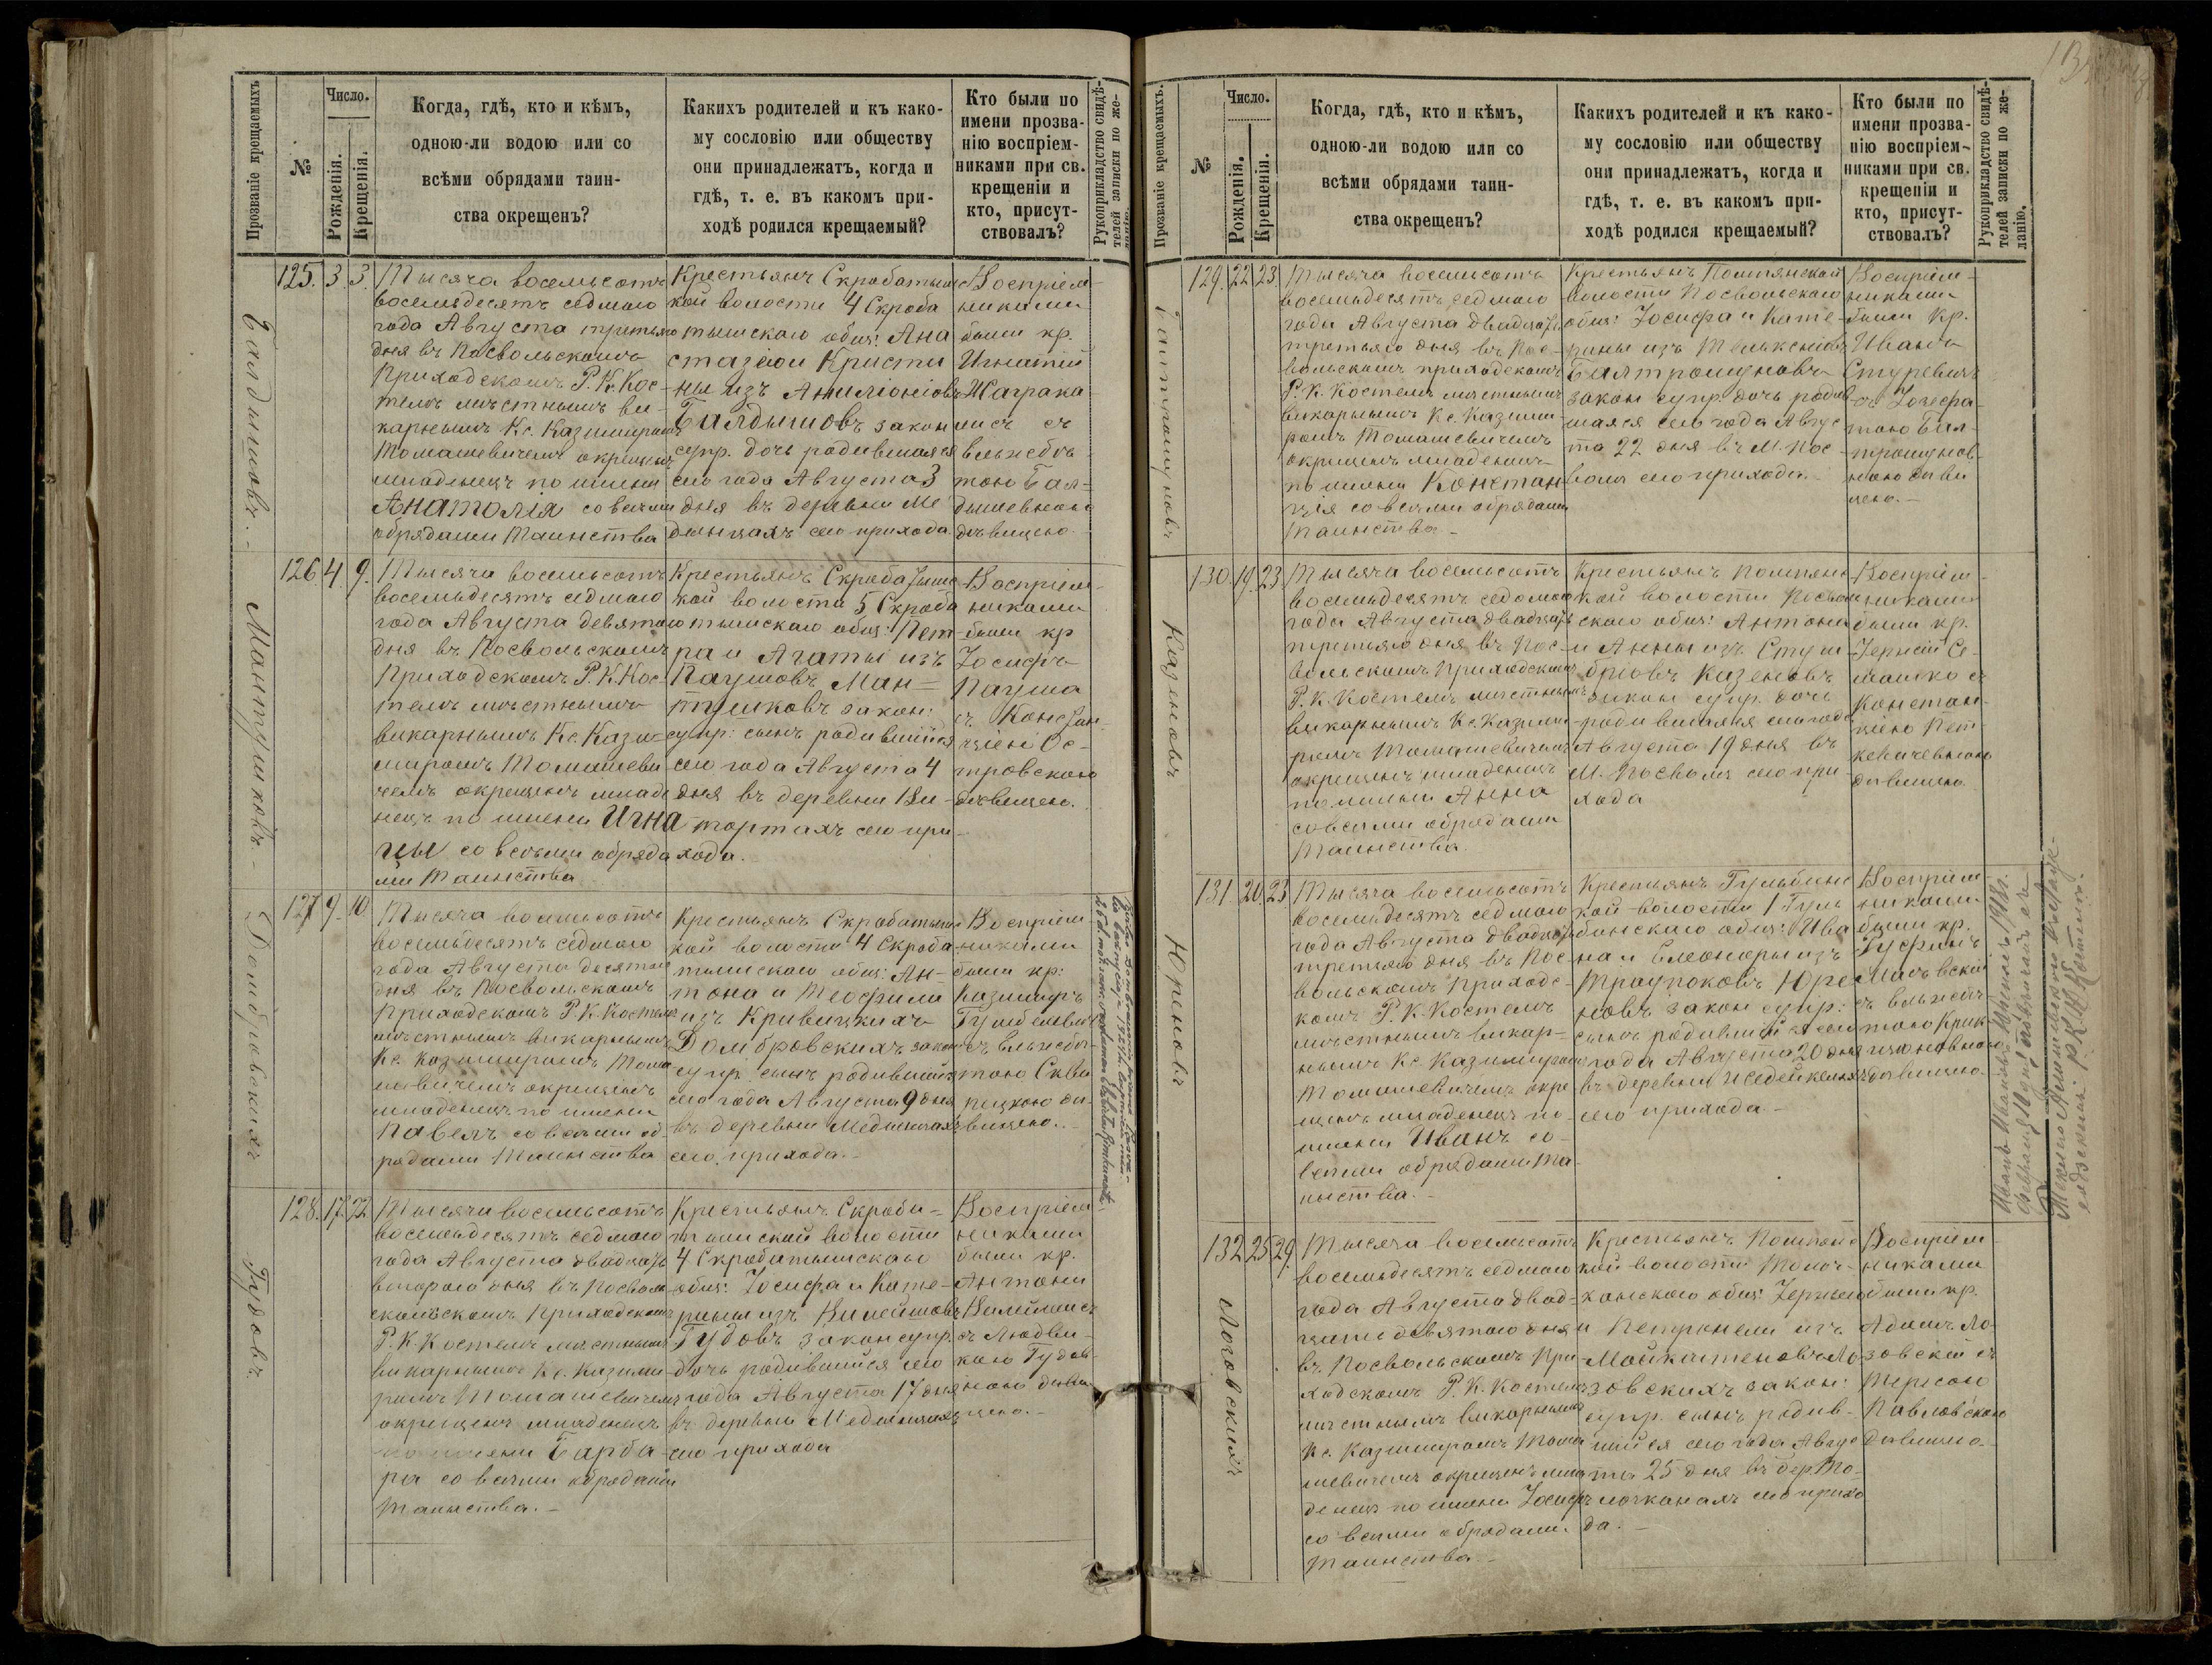 Прозваніе крещаемыхъ
№
Число.
Рожденія.
Крещенія.
Когда, гдѣ, кто и кѣмъ,
одною-ли водою или со
всѣми обрядами таин-
ства окрещенъ?
Какихъ родителей и къ како-
му сословію или обществу
они принадлежатъ, когда и
гдѣ, т. е. въ какомъ при-
ходѣ родился крещаемый?
Кто были по
имени прозва-
нію воспріем-
никами при св.
крещеніи и
кто, присут-
ствовалъ?
Рукоприкладство свидѣ-
телей записки по же-
ланію.
Балдышовъ.-
125. 3 3.
Тысяча восемьсотъ
восемьдесятъ седмаго
года Августа третьяго
дня въ Посвольскомъ
Приходскомъ Р. К. Кос-
телѣ мѣстнымъ ви-
карнымъ Кс. Казимиромъ
Томашевичемъ окрещенъ
младенецъ по имени
Анатолія со всѣми
обрядами Таинства
Крестьянъ Скробатыш
кой волости 4 Скроба
тышскаго общ: Ана
стазіи и Кристи
ны изъ
Балдышовъ закон
супр. дочь родившаяся
сего года Августа 3
дня въ деревни Ме
дынцахъ сего прихода
Воспріем-
никами
были кр.
Игнатій
съ
Ельжбѣ
тою Бал=
дышевною
дѣвицею
Мантушковъ-
126 4 9.
Тысяча восемьсотъ
восемьдесятъ седмаго
года Августа девятаго
дня въ Посвольскомъ
Приходскомъ Р. К. Кос-
телѣ мѣстнымъ
викарнымъ Кс. Кази-
миромъ Томашеви
чемъ окрещенъ младе
нецъ по имени Игна
цы со всѣми обряда
ми Таинства
Крестьянъ Скробатышс
кой волости 5 Скроба
тышскаго общ: Пет
ра и Агаты изъ
Паушовъ Ман=
тушковъ закон:
супр: сынъ родившійся
сего года Августа 4
дня въ деревни Ви-
тортахъ сего при-
хода.
Воспріем-
никами
были кр
Іосифъ
Пауша
съ Констан-
ціею Ос-
тровскою
дѣвицею.
Домбровскихъ
127 9. 10.
Тысяча восемьсотъ
восемьдесятъ седмаго
года Августа десятаго
дня въ Посвольскомъ
Приходскомъ Р. К. Костелѣ
мѣстнымъ викарнымъ
Кс. Казимиромъ Тома
шевичемъ окрещенъ
младенецъ по имени
Павелъ со всѣми об-
рядами Таинства
Крестьянъ Скробатыш
кой волости 4 Скроба
тышскаго общ: Ан-
тона и Теофили
изъ Кривицкихъ
Домбровскихъ закон
супр. сынъ родившійся
сего года Августа 9 дня
въ деревни Медынцахъ
сего прихода.-
Воспріем
никами
были кр:
Казимиръ
съ Ельжбѣ
тою Скви
рецкою дѣ-
вицею.
Гудовъ.
128. 17. 22
Тысяча восемьсотъ
восемьдесятъ седмаго
года Августа двадцать
втораго дня въ Посволь
скомъ Приходскомъ
Р. К. Костелѣ мѣстнымъ
викарнымъ Кс. Казими
ромъ Томашевичемъ
окрещенъ младенецъ
по имени Барба-
ра со всѣми обрядами
Таинства.-
Крестьянъ Скроба-
тышской волости
4 Скробатышскаго
общ: Іосифа и Кате-
рины изъ Вилейшовъ
Гудовъ закон супр.
дочь родившійся сего
года Августа 17 дня
въ деревни Медынцахъ
сего прихода
Воспріем
никами
были кр.
Антони
Вилейшисъ
съ Людви-
кою Гудов-
ною дѣви
цею.-
Прозваніе крещаемыхъ.
№
Число.
Рожденія.
Крещенія.
Когда, гдѣ, кто и кѣмъ,
одною-ли водою или со
всѣми обрядами таин-
ства окрещенъ?
Какихъ родителей и къ како-
му сословію или обществу
они принадлежатъ, когда и
гдѣ, т. е. въ какомъ при-
ходѣ родился крещаемый?
Кто были по
имени прозва-
нію воспріем-
никами при св.
крещеніи и
кто, присут-
ствовалъ?
Рукоприкладство свидѣ-
телей записки по же-
ланію.
Балтрошуновъ
129. 22 23.
Тысяча восемьсотъ
восемьдесятъ седмаго
года Августа двадцать
третьяго дня въ Пос-
вольскомъ приходскомъ
Р. К. Костелѣ мѣстнымъ
викарнымъ Кс. Казими
ромъ Томашевичемъ
окрещенъ младенецъ
по имени Констан
ція со всѣми обрядами
Таинства-
Крестьянъ Помпянской
волости Посвольскаго
общ: Іосифа и Кате-
рины изъ
Балтрошуновъ
закон супр. дочь родив
шаяся сего года Авгус
та 22 дня въ М. Пос-
волѣ сего прихода.-
Воспріем-
никами
были кр.
Иванъ
съ Іозефа-
тою Бал-
трошунов-
ною дѣви
цею.-
Казеновъ
130. 19. 23
Тысяча восемьсотъ
восемьдесятъ седмаго
года Августа двадцать
третьяго дня въ Пос-
вольскомъ Приходскомъ
Р. К. Костелѣ мѣстнымъ
викарнымъ Кс. Казими
ромъ Томашевичемъ
окрещенъ младенецъ
по имени Анна
со всѣми обрядами
Таинства.
Крестьянъ Помпянс
кой волости Посволь
скаго общ: Антони
и Анны изъ Стум-
бріовъ Казеновъ
закон супр. дочь
родившаяся сего года
Августа 19 дня въ
М. Посволѣ сего при-
хода
Воспріем-
никами
были кр.
Іерній Се-
машко съ
Констан-
ціею Пет
кевичевною
дѣвицею
Юреновъ
131. 20. 23
Тысяча восемьсотъ
восемьдесятъ седмаго
года Августа двадцать
третьяго дня въ Пос
вольскомъ Приходс-
комъ Р. К. Костелѣ
мѣстнымъ викар-
нымъ Кс. Казимиромъ
Томашевичемъ окре
щенъ младенецъ по
имени Иванъ со
всѣми обрядами Та-
инства.-
Крестьянъ Гульбинс
кой волости 1 Гуль
бинскаго общ: Ива
на и Елеоноры изъ
Траупоковъ Юре
новъ закон супр:
сынъ родившійся сего
года Августа 20 дня
въ деревни
сего прихода-
Воспріем
никами
были кр.
съ Ельжбѣ
тою
дѣвицею.
Лозовскихъ
132 25 29.
Тысяча восемьсотъ
восемьдесятъ седмаго
года Августа двад-
цать девятаго дня
въ Посвольскомъ При
ходскомъ Р. К. Костелѣ
мѣстнымъ викарнымъ
Кс. Казимиромъ Тома
шевичемъ окрещенъ мла
денецъ по имени Іосифъ
со всѣми обрядами
Таинства-
Крестьянъ Помпянс
кой волости Толоч-
канскаго общ: Іерніего
и Петронели изъ
Мойкштеновъ Ло-
зовскихъ закон:
супр. сынъ родив-
шійся сего года Авгус
та 25 дня въ дер То-
лочканахъ сего прихо
да.-
Воспріем-
никами
были кр.
Адамъ Ло-
зовскій съ
Тересою
Павловскою
дѣвицею